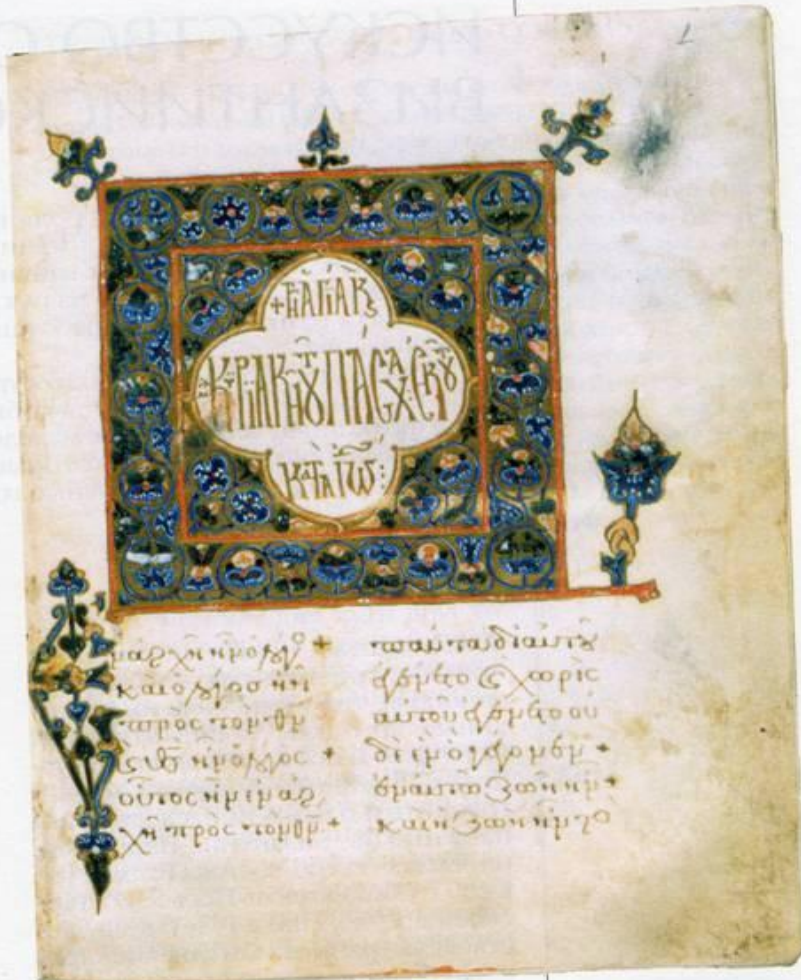 1
+ΤΗ ΑΓΙΑ Κς
ΚΥΡΙΑΚΗ ΤΟΥ ΠΑΣΧΑ· ΕΚ ΤΟΥ
ΚΑΤΑ ἸΩ:
ἐν ἀρχῆ ἦν ὁ λόγο +
καὶ ὁ λόγος ἦν
πρὸς τὸν θν
ϗ θς ἦν ὁ λόγος +
οὗτος ἦν ἐν ἀρ
χῆ πρὸς τὸν θν +
πάντα δι αὐτοῦ
ἐγένετο ϗ χωρὶς
αὐτοῦ ἐγένετο οὐ
δὲ ἓν ὃ γέγονεν +
ἐν αὐτῶ ζωὴ ἦν +
καὶ ἡ ζωὴ ἦν τὸ